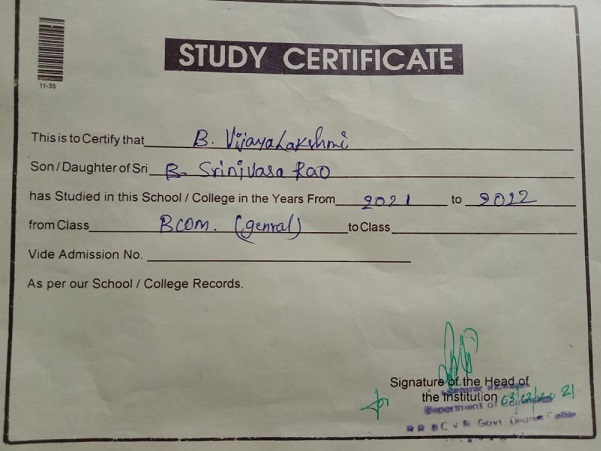 11-35
STUDY CERTIFICATE
This is to Certify that B. VijayaLakshmi
Son / Daughter of Sri B. Srinivasa Rao
has Studied in this School / College in the Years From 2021 to 2022
from Class BCOM. (genral) to Class
Vide Admission No.
As per our School / College Records.
Signature of the Head of
the Institution
Department of
C V R Govt. Degree College